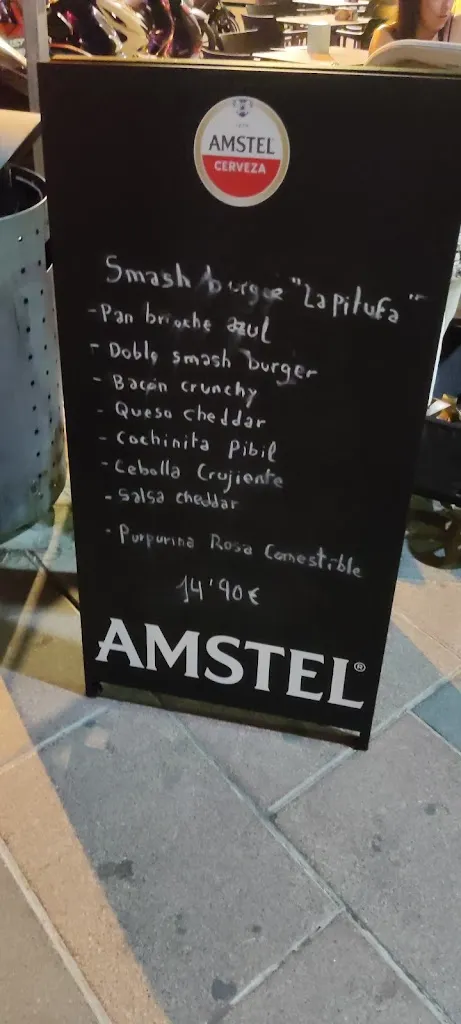 AMSTEL
CERVEZA
Smash burger "La pitufa"
- Pan brioche azul
- Doble smash burger
- Bacon crunchy
- Queso cheddar
- Cochinita Pibil
- Cebolla Crujiente
- Salsa cheddar
- Purpurina Rosa Comestible
14'90€
AMSTEL®